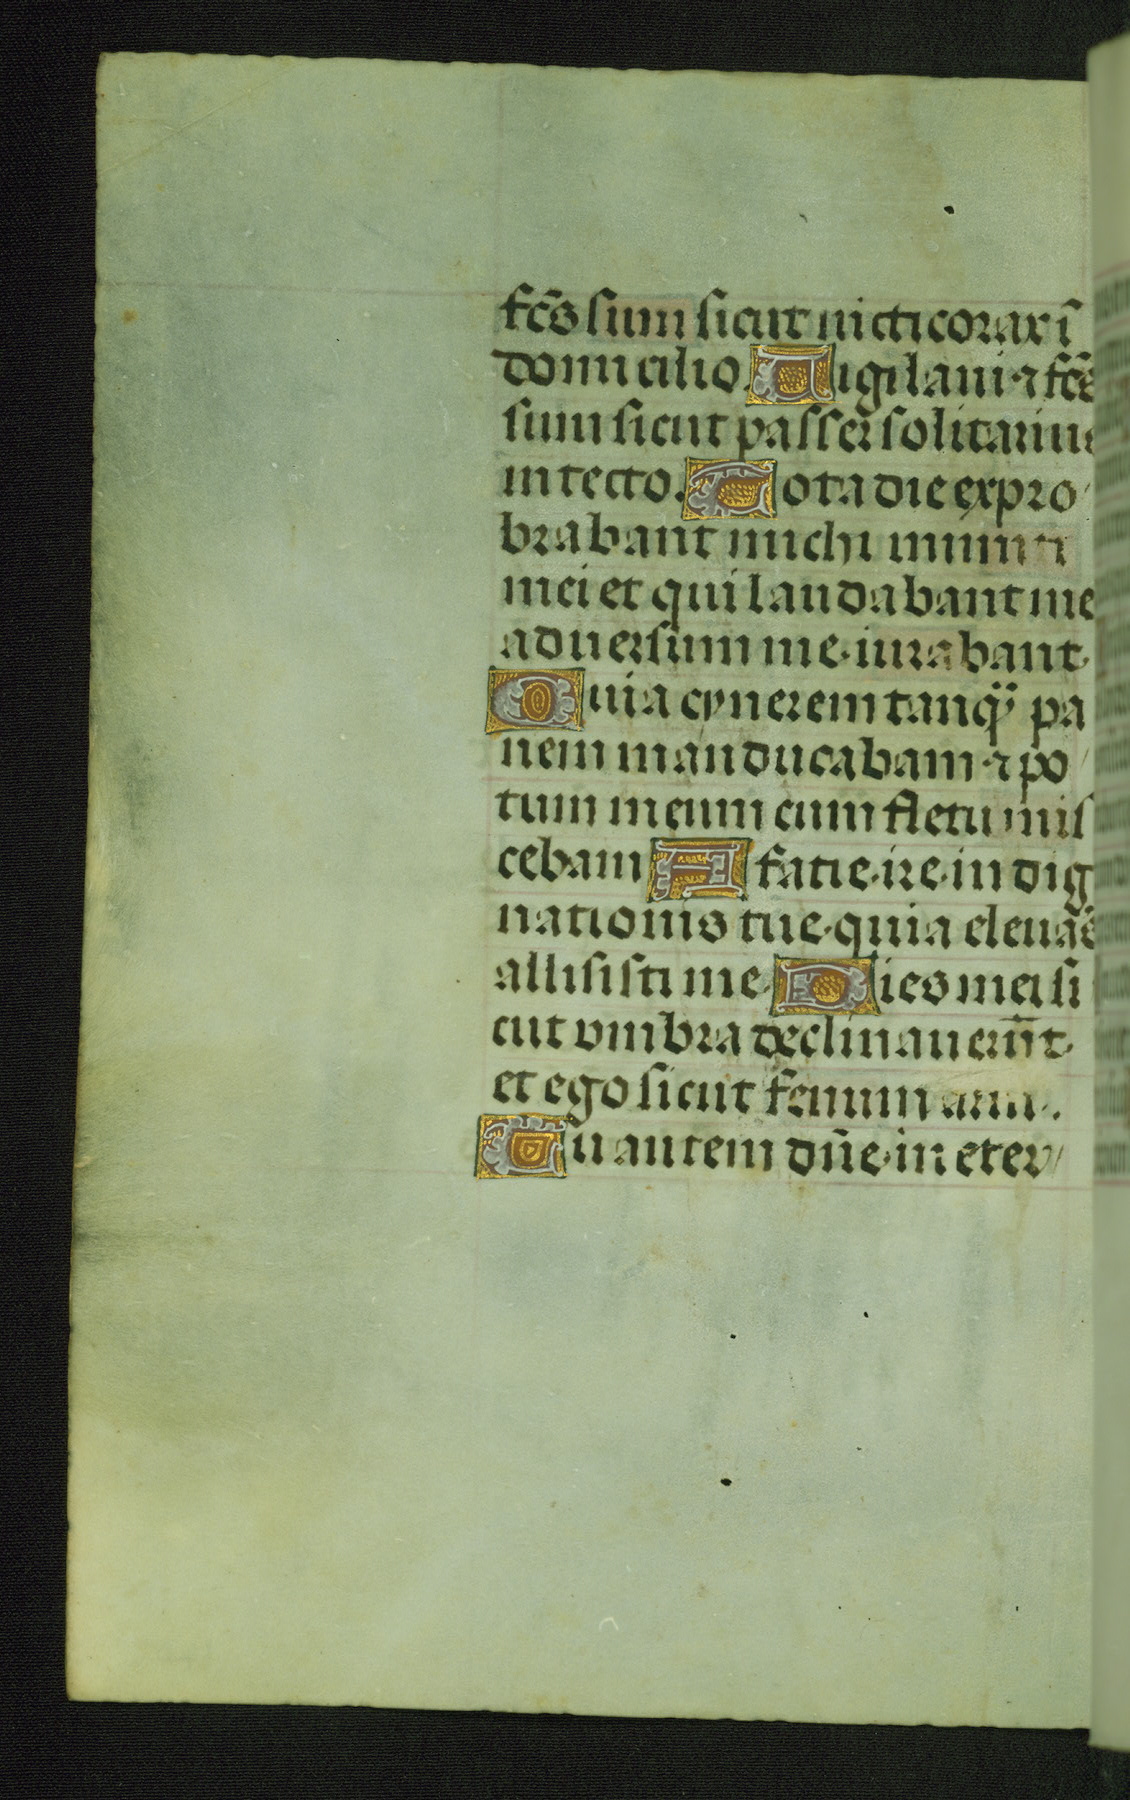 fc̄s sum sicut nicticorax ī
domicilio. Uigilaui ⁊ fc̄s
sum sicut passer solitarius
in tecto. Tota die expro
brabant michi inimici
mei et qui laudabant me
aduersum me iurabant.
Quia cynerem tanq̄ pa
nem manducabam ⁊ po
tum meum cum fletu mis
cebam A facie ire indig
nationis tue quia eleuās
allisisti me Dies mei si
cut vmbra declinauerūt
et ego sicut fenum arui.
Tu autem dn̄e in eter